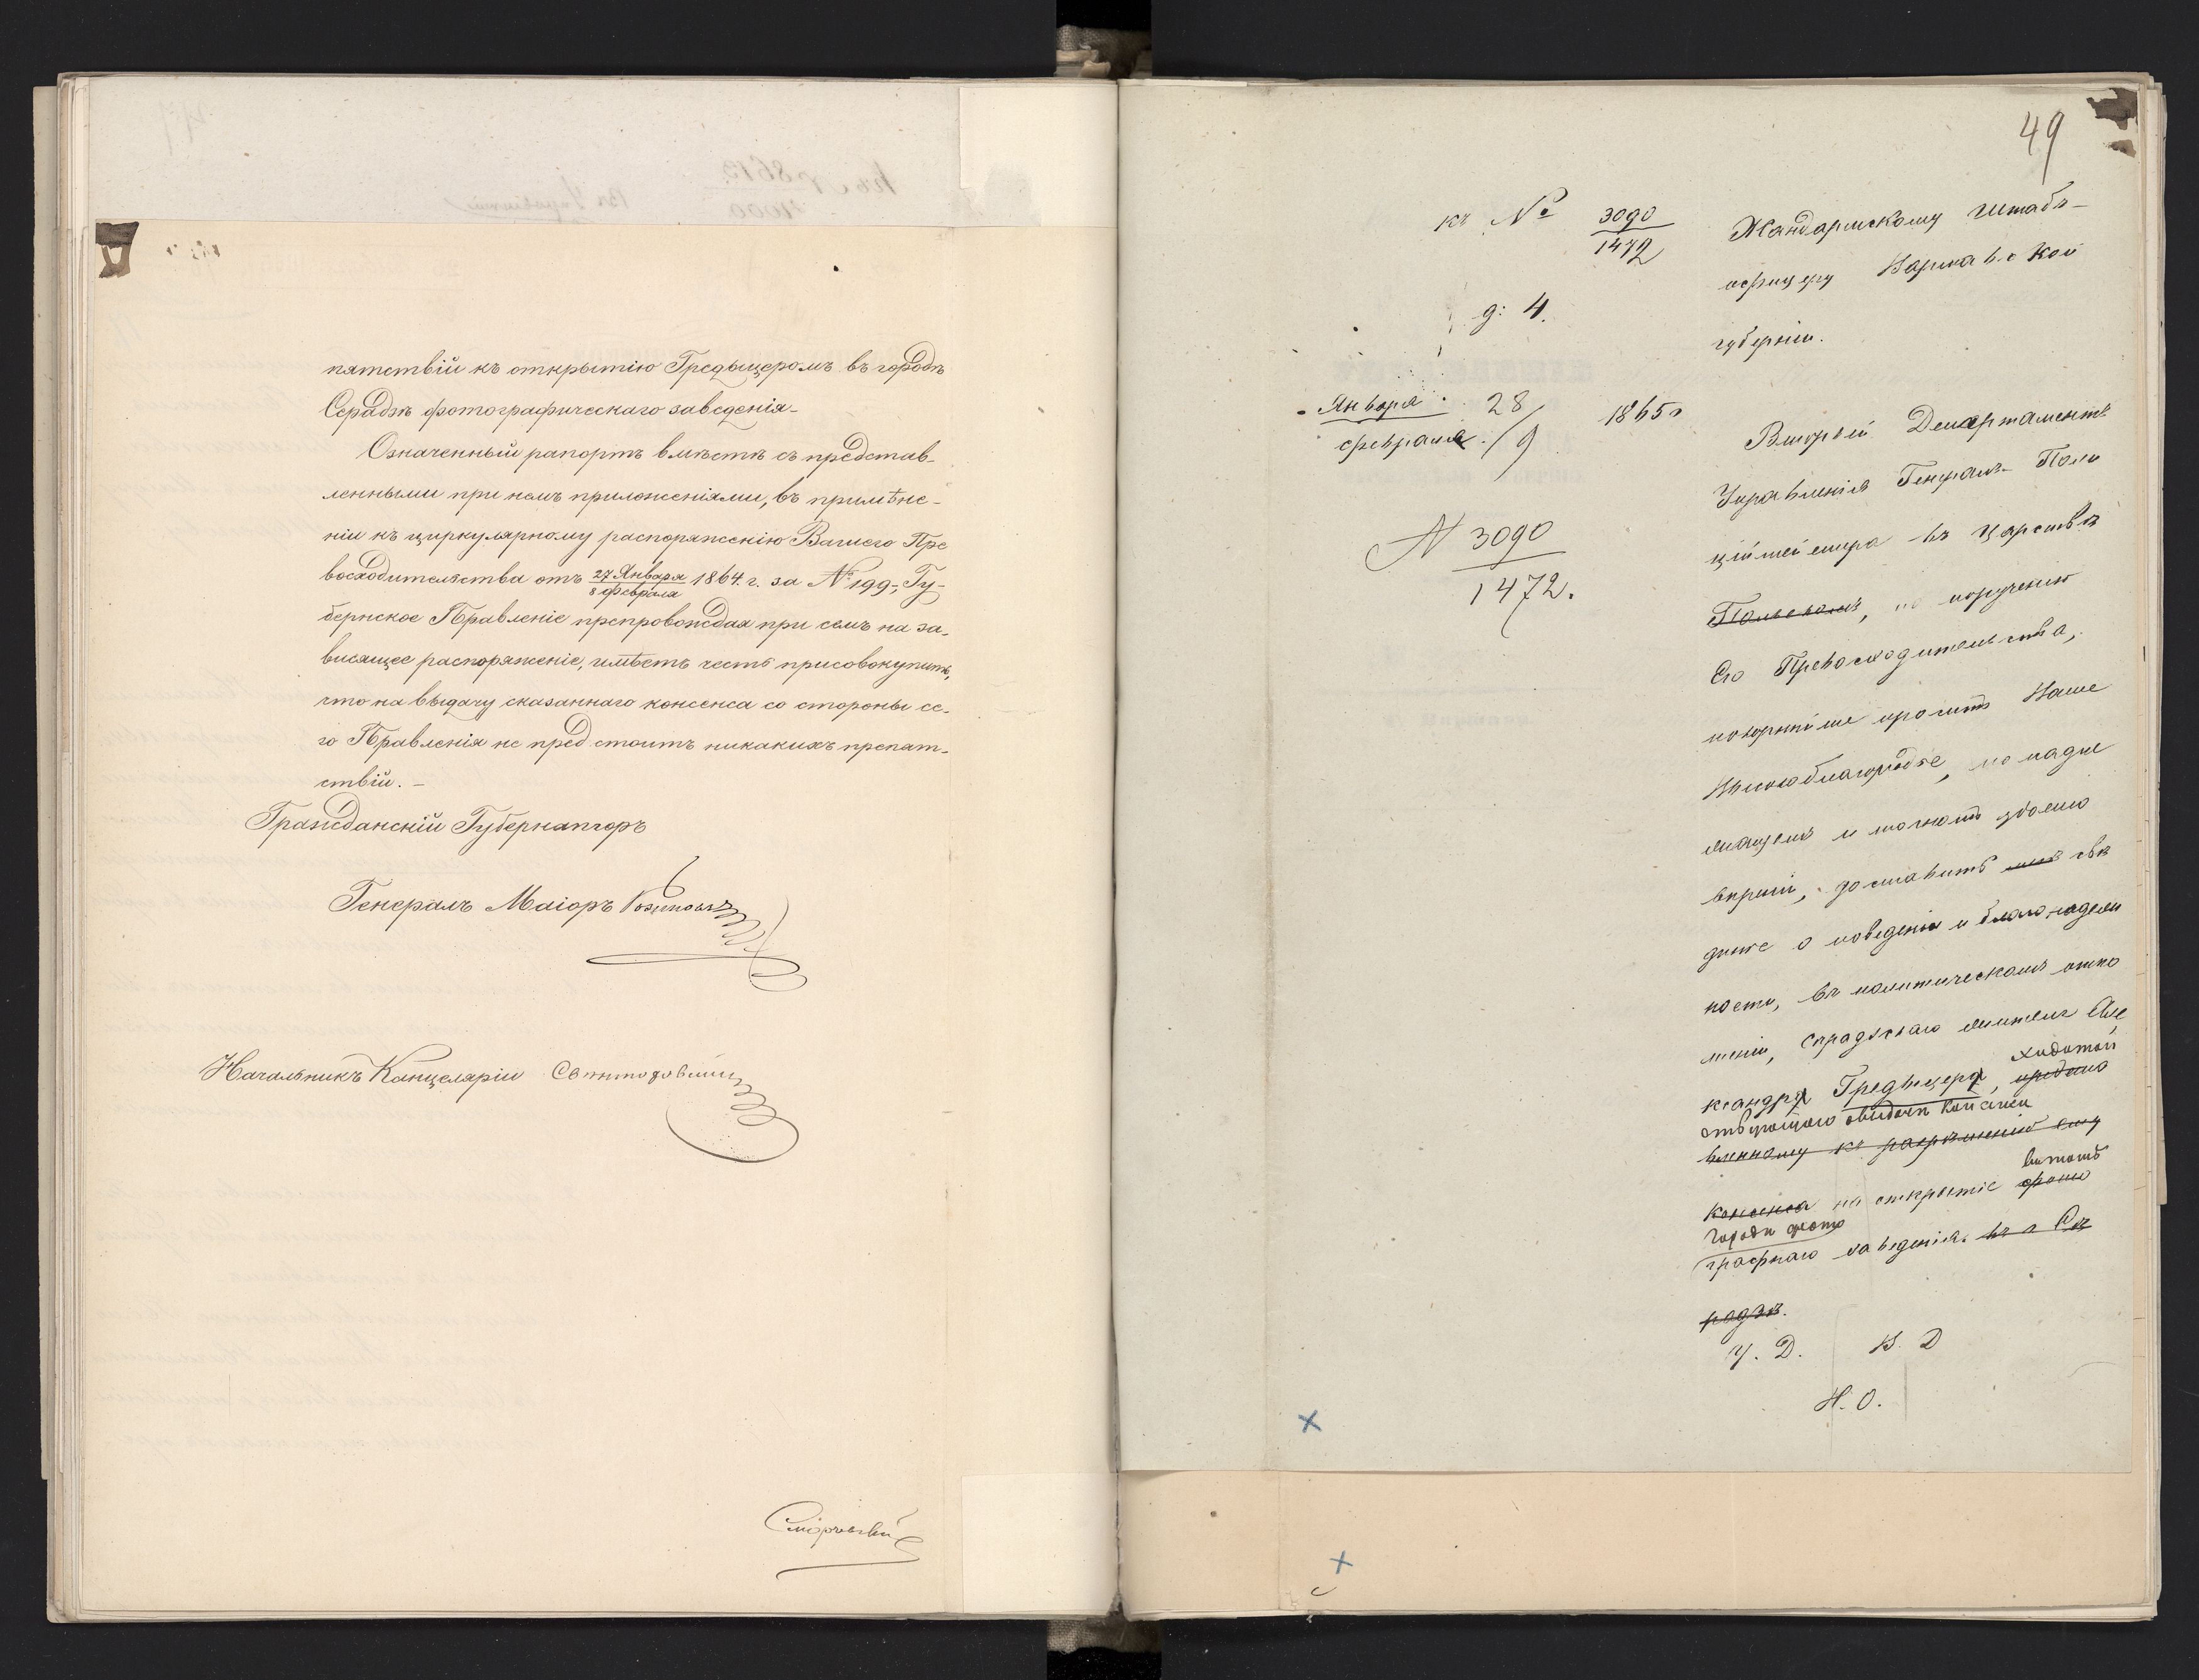 пятствій къ открытію Гредыцеромъ въ городѣ
Серадзѣ фотографическаго заведенія.
Означенный рапортъ вмѣстѣ съ представ-
ленными при немъ приложеніями, въ примѣне-
ніи къ циркулярному распоряженію Вашего Пре
восходительства отъ 27 Января / 8 февраля 1864 г. за № 199, Гу-
бернское Правленіе препровождая при семъ на за-
висящее распоряженіе, имѣетъ честь присовокупить,
что на выдачу сказаннаго консенса со стороны се-
го Правленія не предстоитъ никакихъ препят-
ствій. –
Гражданскій Губернаторъ
Генералъ Маіоръ
Начальникъ Канцеляріи
49
къ № 3090 / 1472
д: 4.
Января 28 / февраля 9 1865 г
N 3090 / 1472.
Жандармскому Штабъ-
офицеру Варшавской
губерніи.
Второй Департаментъ
Управленія Генералъ-Поли
ційместера въ Царствѣ
Польскомъ, по порученію
Его Превосходительства,
покорнѣйше проситъ Ваше
Высокоблагородіе, по надле
жащемъ и точномъ удосто
вѣреніи, доставить ему свѣ
дѣніе о поведеніи и благонадежн
ности, въ политическомъ отно
шеніи, Серадзскаго жителя Але
ходатай
ксандра Гредыцера, предста
ствующаго о выдачѣ консенса
вленному къ разрѣшенію ему
въ томъ
консенса на открытіе фото
городѣ фото
графнаго заведенія. въ г. Се
радзѣ.
У. Д. В. Д
Н. О.